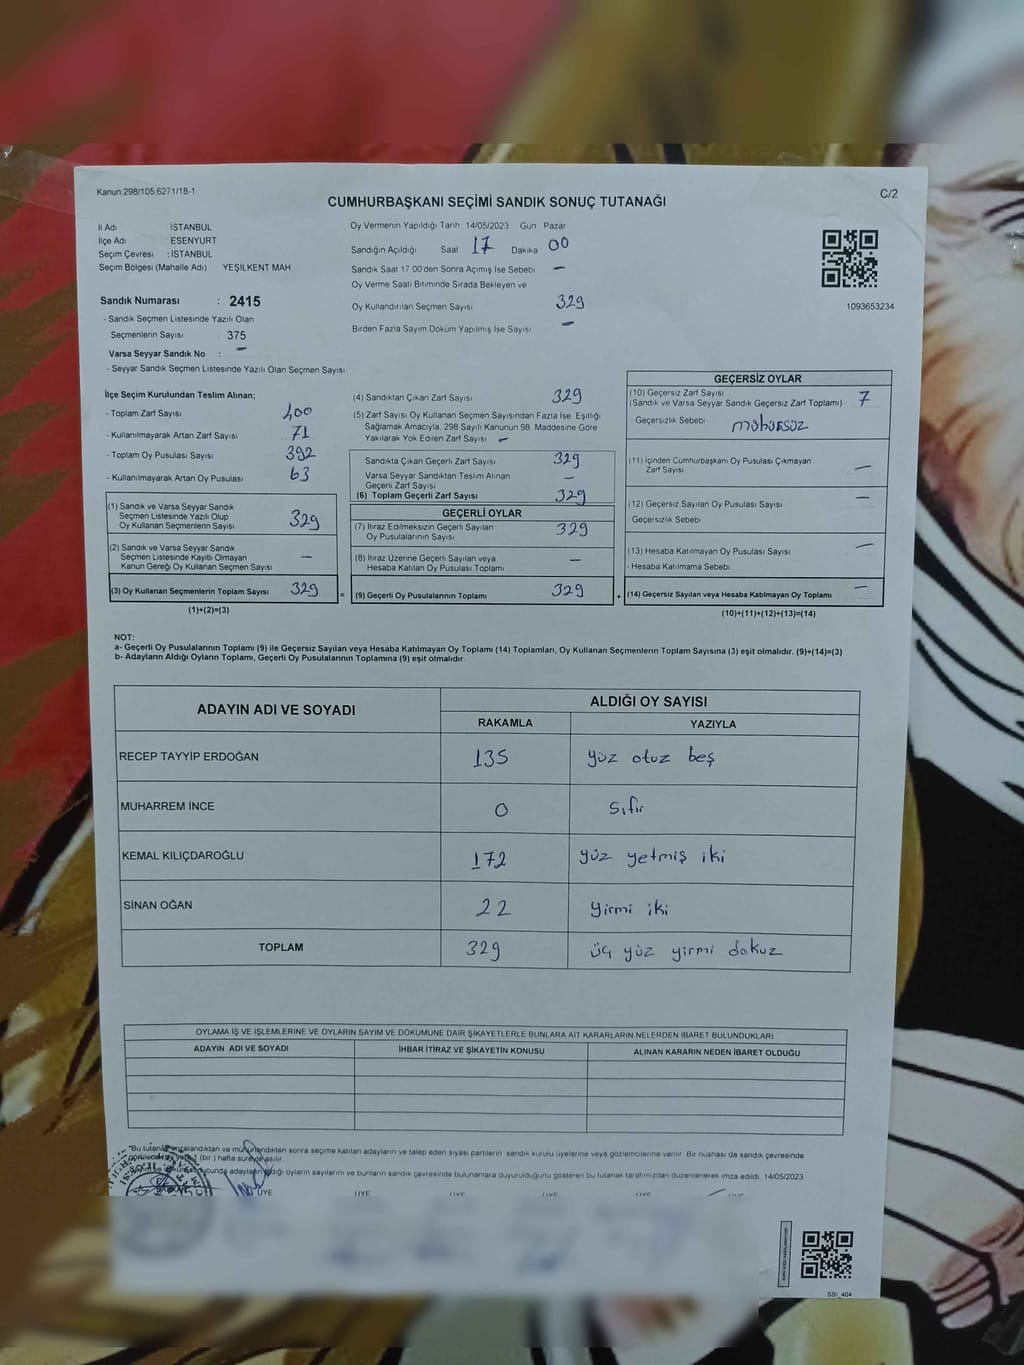 Kanun,298/105,6271/18-1
C/2
CUMHURBAŞKANI SEÇİMİ SANDIK SONUÇ TUTANAĞI
İl Adı İSTANBUL
İlçe Adı ESENYURT
Seçim Çevresi : İSTANBUL
Seçim Bölgesi (Mahalle Adı) YEŞİLKENT MAH
Sandık Numarası : 2415
- Sandık Seçmen Listesinde Yazılı Olan
Seçmenlerin Sayısı : 375
Varsa Seyyar Sandık No : -
- Seyyar Sandık Seçmen Listesinde Yazılı Olan Seçmen Sayısı
Oy Vermenin Yapıldığı Tarih 14/05/2023 Gün Pazar
Sandığın Açıldığı Saat 17 Dakika 00
Sandık Saat 17 00'den Sonra Açımış İse Sebebi -
Oy Verme Saati Bitiminde Sırada Bekleyen ve
Oy Kullandırılan Seçmen Sayısı 329
Birden Fazla Sayım Döküm Yapılmış İse Sayısı -
1093653234
İlçe Seçim Kurulundan Teslim Alınan;
- Toplam Zarf Sayısı 400
- Kullanılmayarak Artan Zarf Sayısı 71
- Toplam Oy Pusulası Sayısı 392
- Kullanılmayarak Artan Oy Pusulası 63
(1) Sandık ve Varsa Seyyar Sandık
Seçmen Listesinde Yazılı Olup
Oy Kullanan Seçmenlerin Sayısı 329
(2) Sandık ve Varsa Seyyar Sandık
Seçmen Listesinde Kayıtlı Olmayan
Kanun Gereği Oy Kullanan Seçmen Sayısı -
(3) Oy Kullanan Seçmenlerin Toplam Sayısı 329 =
(1)+(2)=(3)
(4) Sandıktan Çıkan Zarf Sayısı 329
(5) Zarf Sayısı Oy Kullanan Seçmen Sayısından Fazla İse Eşitliği
Sağlamak Amacıyla, 298 Sayılı Kanunun 98 Maddesine Göre
Yakılarak Yok Edilen Zarf Sayısı -
Sandıkta Çıkan Geçerli Zarf Sayısı 329
Varsa Seyyar Sandıktan Teslim Alınan
Geçerli Zarf Sayısı -
(6) Toplam Geçerli Zarf Sayısı 329
GEÇERLİ OYLAR
(7) İtiraz Edilmeksizin Geçerli Sayılan
Oy Pusulalarının Sayısı 329
(8) İtiraz Üzerine Geçerli Sayılan veya
Hesaba Katılan Oy Pusulası Toplamı -
(9) Geçerli Oy Pusulalarının Toplamı 329 +
GEÇERSİZ OYLAR
(10) Geçersiz Zarf Sayısı
(Sandık ve Varsa Seyyar Sandık Geçersiz Zarf Toplamı) 7
- Geçersizlik Sebebi mühürsüz
(11) İçinden Cumhurbaşkanı Oy Pusulası Çıkmayan
Zarf Sayısı -
(12) Geçersiz Sayılan Oy Pusulası Sayısı -
Geçersizlik Sebebi
(13) Hesaba Katılmayan Oy Pusulası Sayısı -
- Hesaba Katılmama Sebebi
(14) Geçersiz Sayılan veya Hesaba Katılmayan Oy Toplamı -
(10)+(11)+(12)+(13)=(14)
NOT:
a- Geçerli Oy Pusulalarının Toplamı (9) ile Geçersiz Sayılan veya Hesaba Katılmayan Oy Toplamı (14) Toplamları, Oy Kullanan Seçmenlerin Toplam Sayısına (3) eşit olmalıdır. (9)+(14)=(3)
b- Adayların Aldığı Oyların Toplamı, Geçerli Oy Pusulalarının Toplamına (9) eşit olmalıdır.
ADAYIN ADI VE SOYADI ALDIĞI OY SAYISI
RAKAMLA YAZIYLA
RECEP TAYYİP ERDOĞAN 135 yüz otuz beş
MUHARREM İNCE 0 sıfır
KEMAL KILIÇDAROĞLU 172 yüz yetmiş iki
SİNAN OĞAN 22 yirmi iki
TOPLAM 329 üç yüz yirmi dokuz
OYLAMA İŞ VE İŞLEMLERİNE VE OYLARIN SAYIM VE DÖKÜMÜNE DAİR ŞİKAYETLERLE BUNLARA AİT KARARLARIN NELERDEN İBARET BULUNDUKLARI
ADAYIN ADI VE SOYADI İHBAR İTİRAZ VE ŞİKAYETİN KONUSU ALINAN KARARIN NEDEN İBARET OLDUĞU
"Bu tutanak imzalandıktan ve mühürlendikten sonra seçime katılan adayların ve talep eden siyasi partilerin sandık kurulu üyelerine veya gözlemcilerine verilir. Bir nüshası da sandık çevresinde
(bir) hafta süreyle asılır.
sonucunda adayların aldığı oyların sayılarını ve bunların sandık çevresinde bulunanlara duyurulduğunu gösteren bu tutanak tarafımızdan düzenlenerek imza edildi. 14/05/2023
BAŞKAN ÜYE ÜYE ÜYE ÜYE ÜYE ÜYE
SSI_404